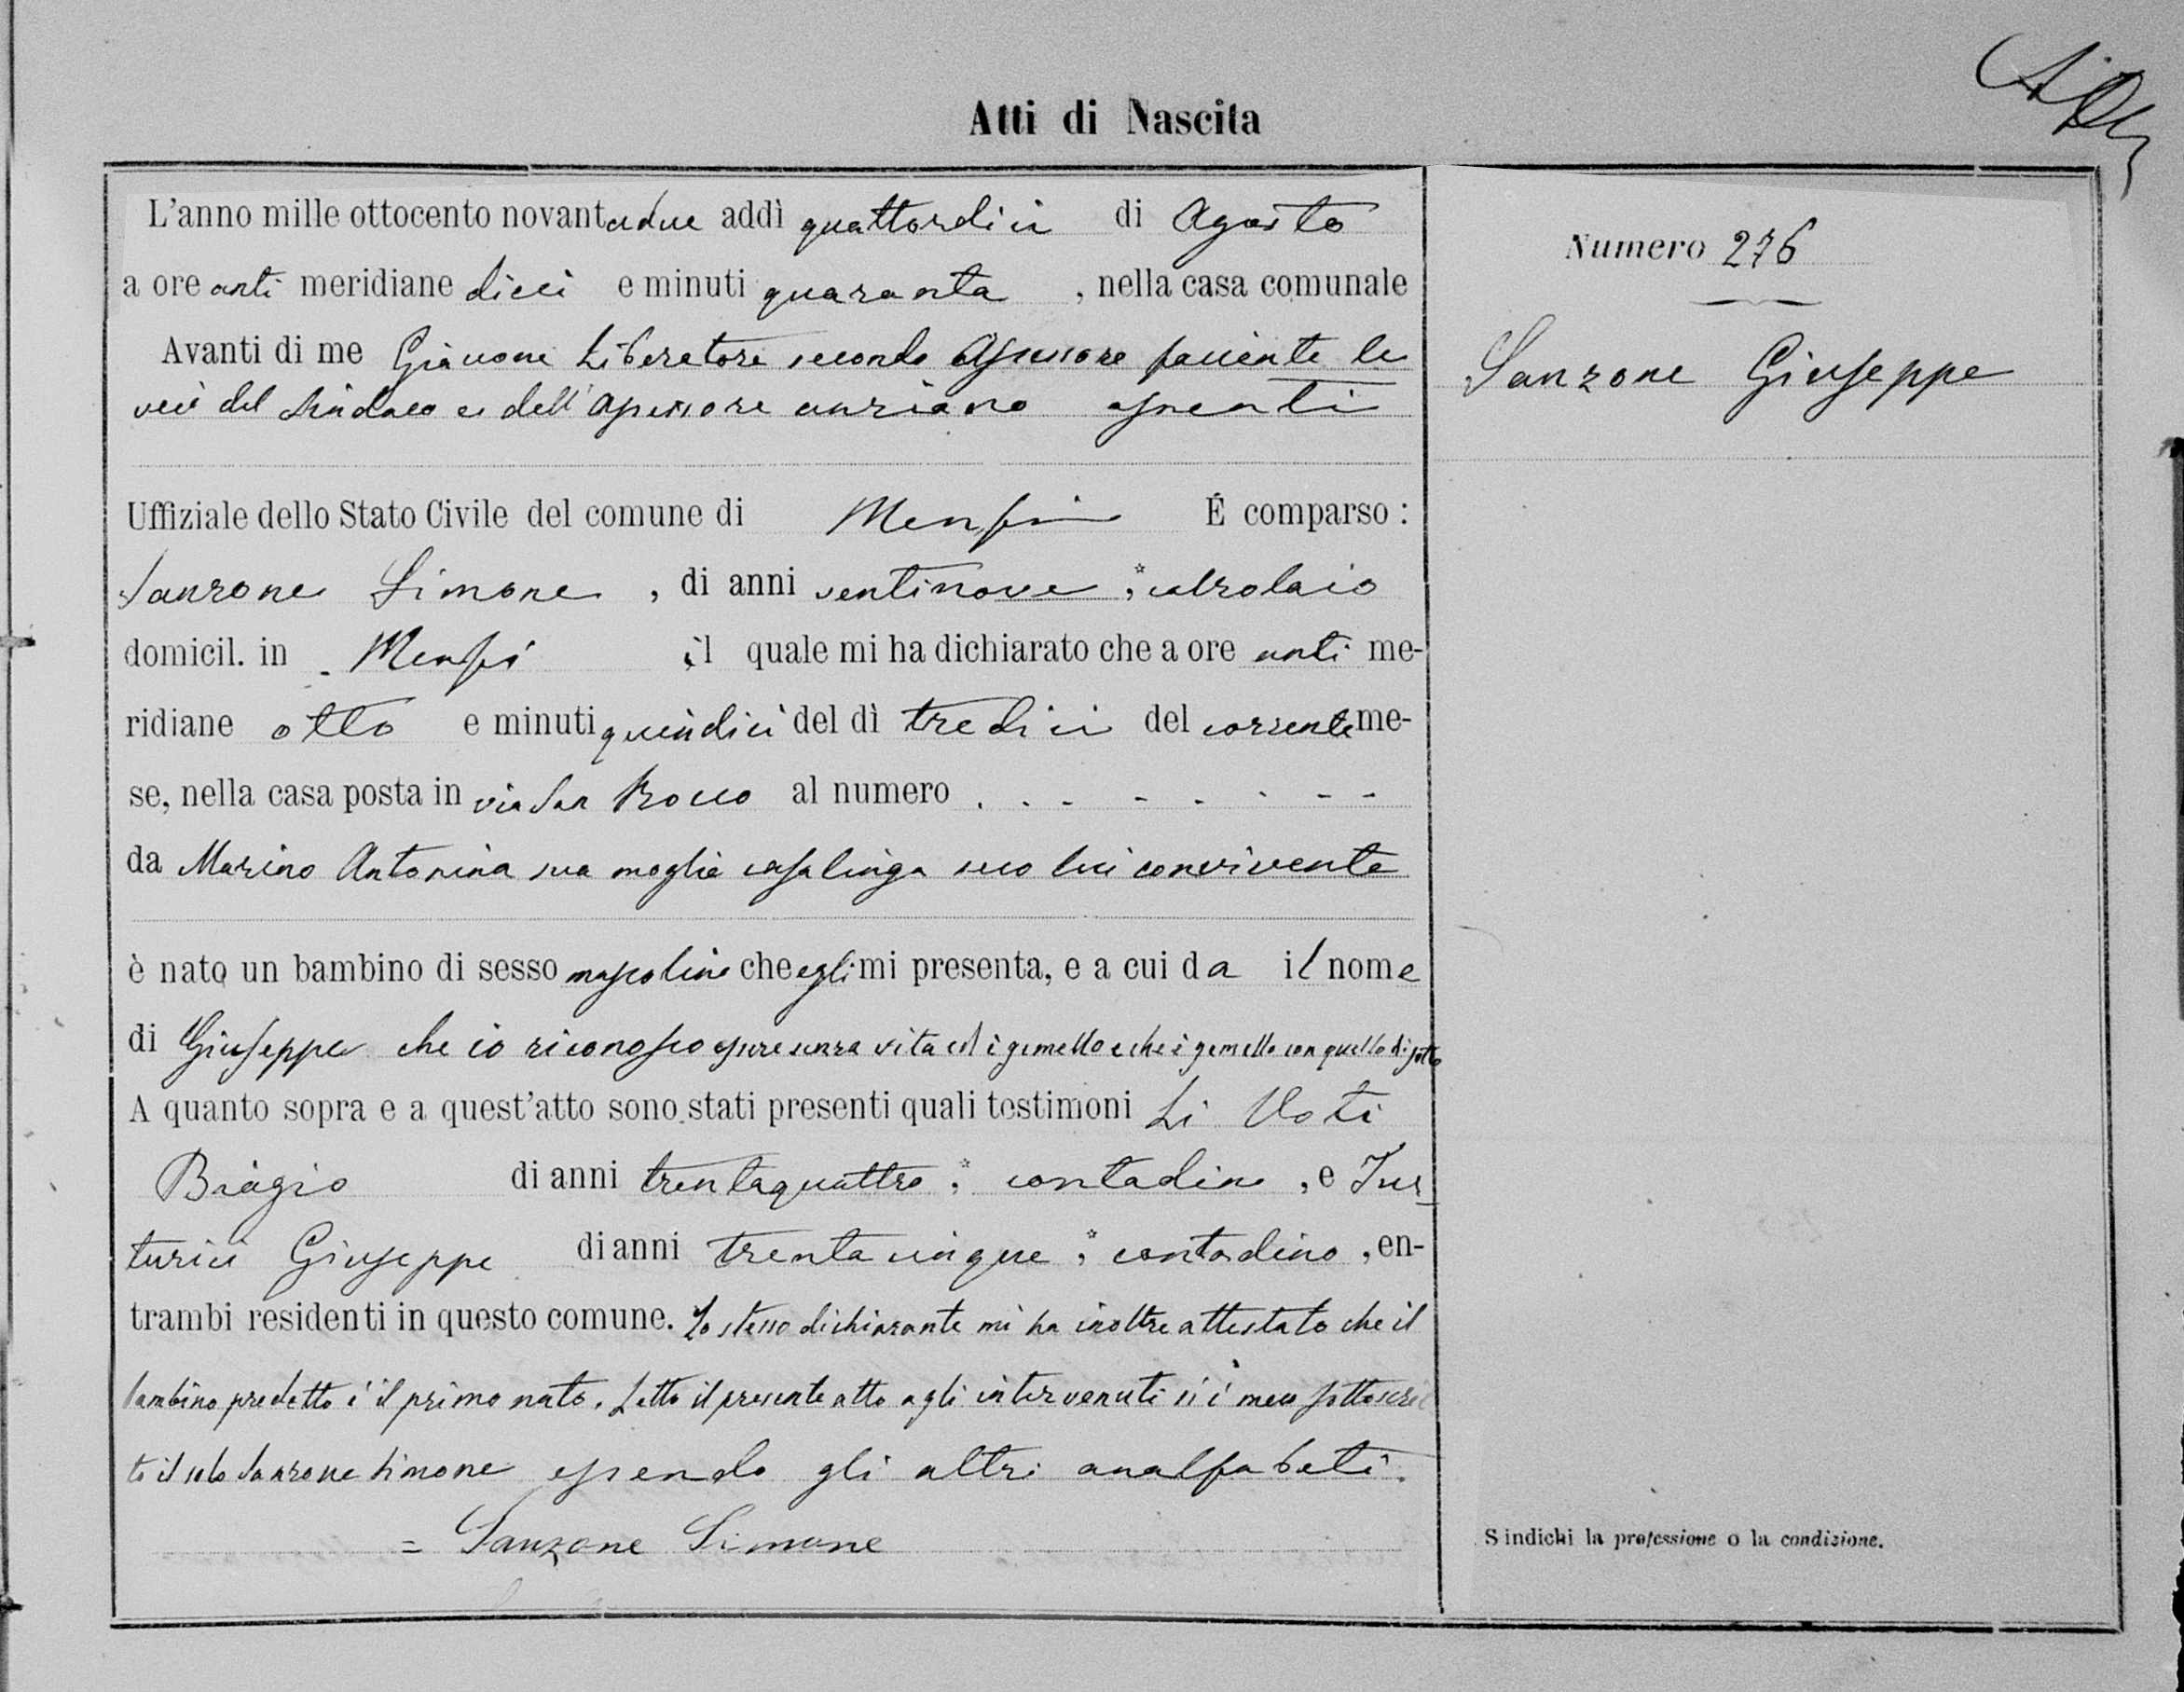 Atti di Nascita
L'anno mille ottocento novantadue addì quattordici di Agosto
a ore anti meridiane dieci e minuti quaranta , nella casa comunale
Avanti di me Giacone Liberatore secondo Assessore facente le
veci del Sindaco e dell'Assessore anziano assenti
Uffiziale dello Stato Civile del comune di Menfi É comparso :
Sanzone Simone , di anni ventinove ,* calzolaio
domicil. in Menfi il quale mi ha dichiarato che a ore anti me-
ridiane otto e minuti quindici del dì tredici del corrente me-
se, nella casa posta in via San Rocco al numero . . - - - - - -
da Marino Antonina sua moglie casalinga seco lui convivente
è nato un bambino di sesso mascolino che egli mi presenta, e a cui da il nome
di Giuseppe che io riconosco essere senza vita ed è gemello e che è gemello con quello di sotto
A quanto sopra e a quest'atto sono stati presenti quali testimoni Li Voti
Biagio di anni trentaquattro ,* contadino , e Tur-
turici Giuseppe di anni trentacinque ,* contadino , en-
trambi residenti in questo comune. Lo stesso dichiarante mi ha inoltre attestato che il
bambino predetto è il primo nato. Letto il presente atto agli intervenuti si è meco sottoscrit
to il solo Sanzone Simone essendo gli altri analfabeti.
= Sanzone Simone
Numero 276
Sanzone Giuseppe
S indichi la professione o la condizione.